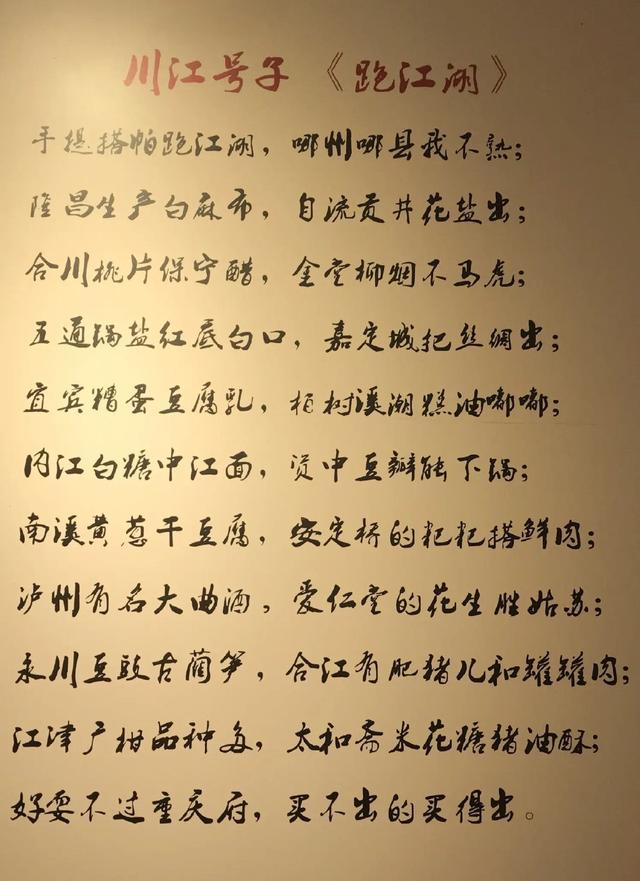 川江号子《跑江湖》
手提搭帕跑江湖，哪州哪县我不熟；
隆昌生产白麻布，自流贡井花盐出；
合川桃片保宁醋，金堂柳烟不马虎；
五通锅盐红底白口，嘉定城把丝绸出；
宜宾糟蛋豆腐乳，柏树溪潮糕油嘟嘟；
内江白糖中江面，资中豆瓣能下锅；
南溪黄葱干豆腐，安定桥的粑粑搭鲜肉；
泸州有名大曲酒，爱仁堂的花生胜姑苏；
永川豆豉古蔺笋，合江有肥猪儿和罐罐肉；
江津广柑品种多，太和斋米花糖猪油酥；
好耍不过重庆府，买不出的买得出。